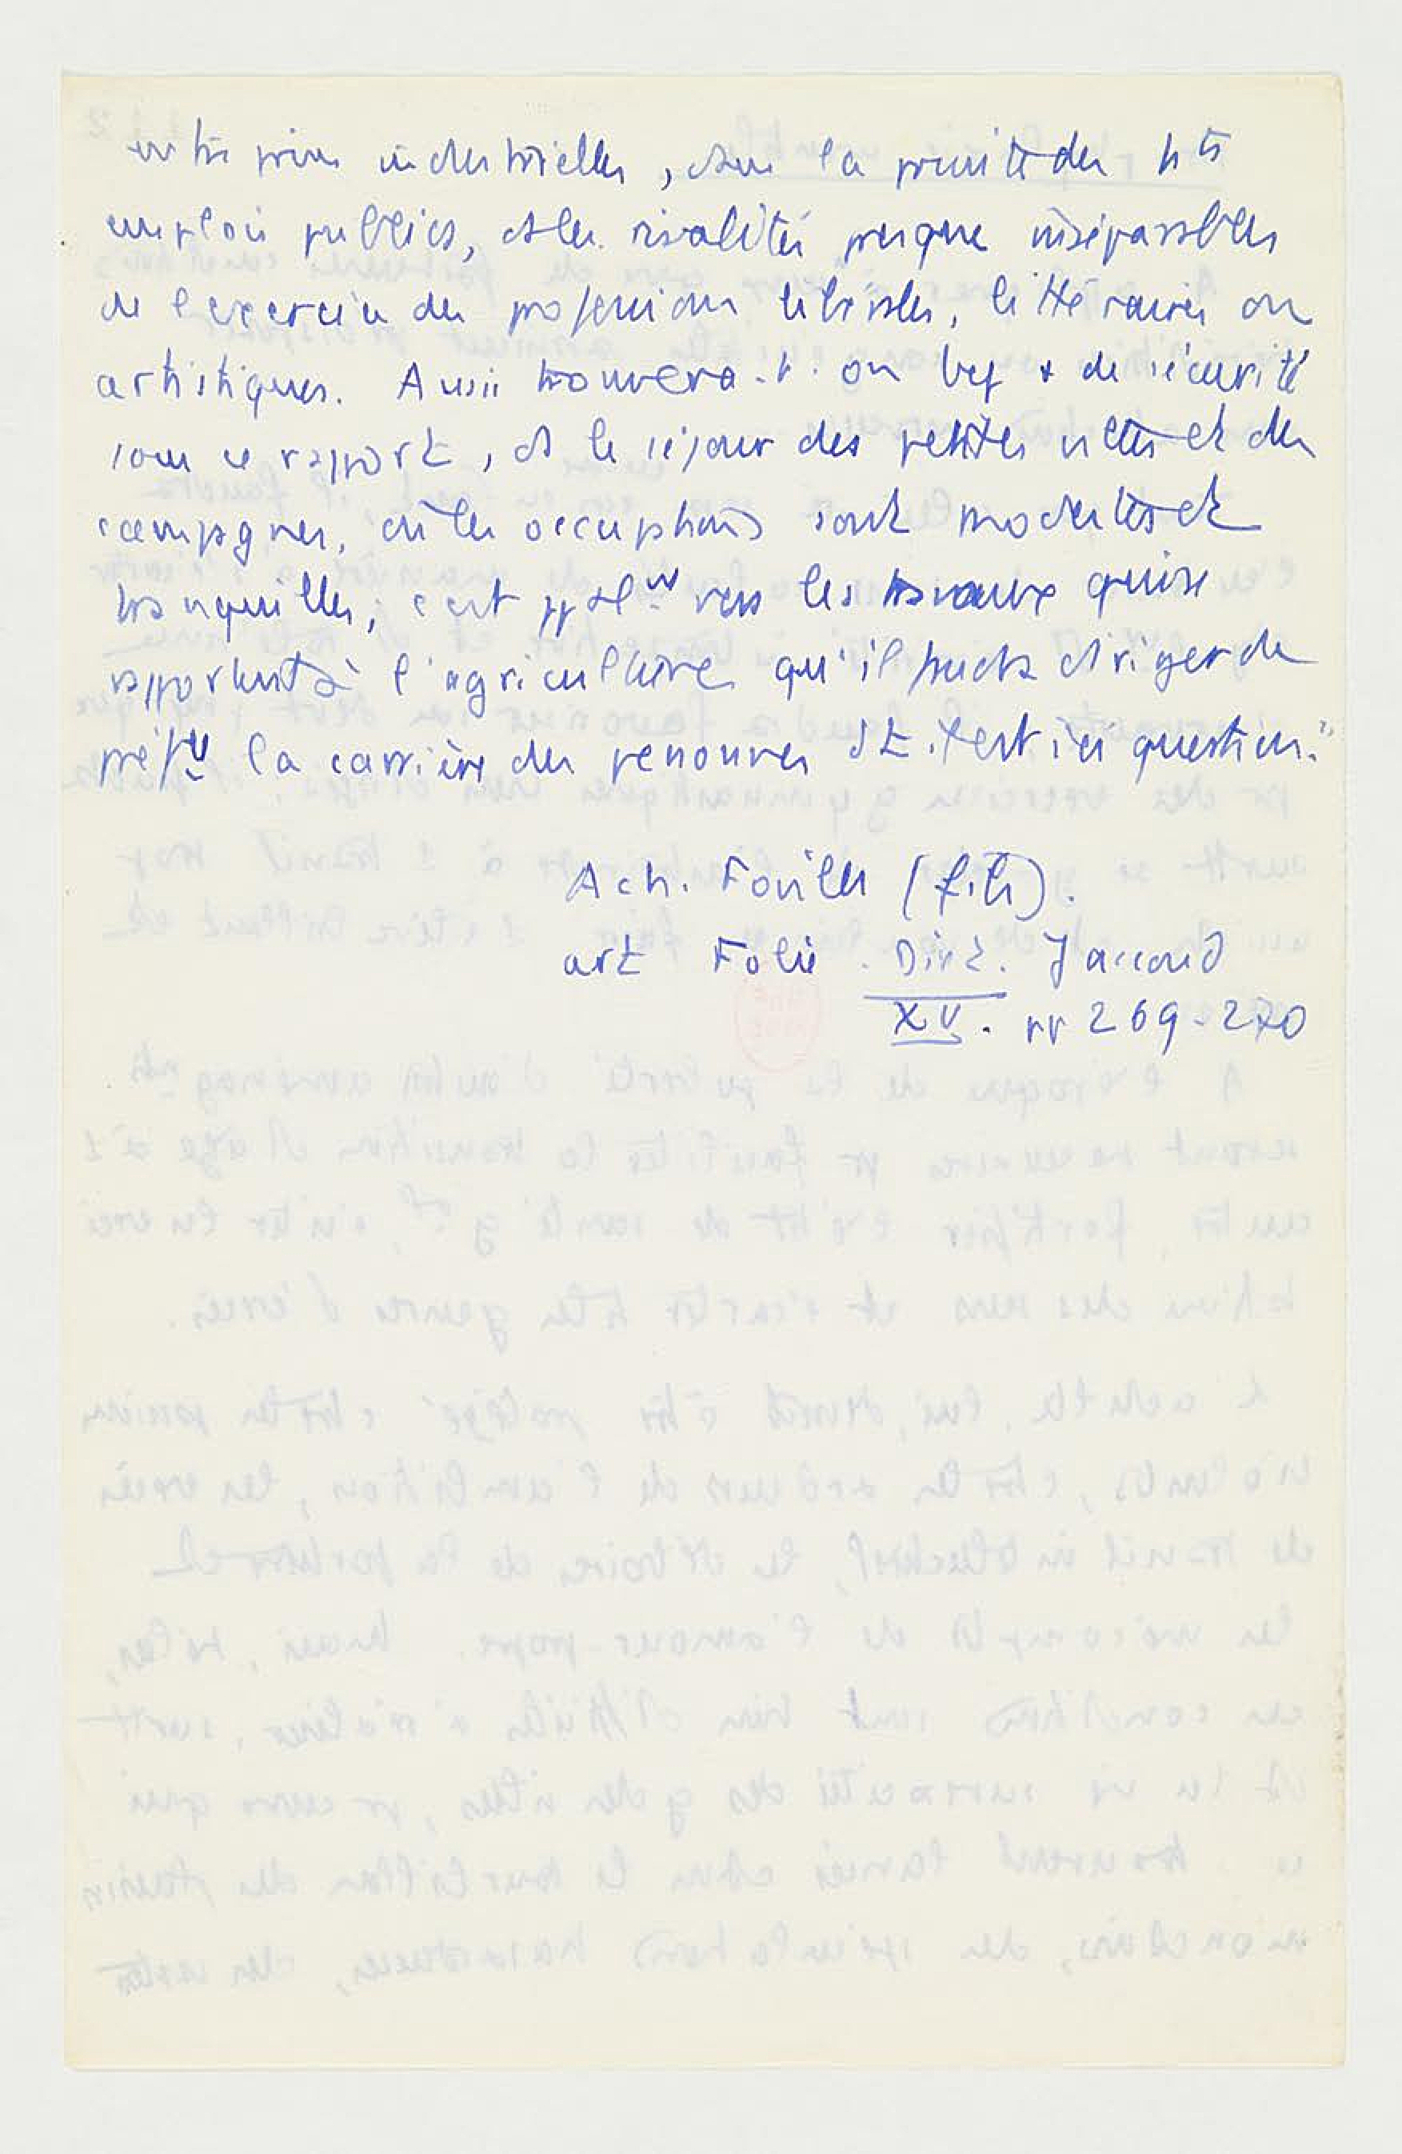 entreprises industrielles, dans la poursuite des hts
emplois publics, ds les rivalités presque inséparables
de l'exercice des professions libérales, littéraires ou
artistiques. Aussi trouvera-t-on bcp + de sécurité
sous ce rapport, ds le séjour des petites villes et des
campagnes, où les occupations sont modestes et
tranquilles, c'est ppalnt vers les travaux qui se
rapportent à l'agriculture qu'il faudra diriger de
préfce la carrière des personnes dt il est ici question."
Ach. Foville (fils).
art Folie. Dict. Jaccoud
XV. pp 269-270